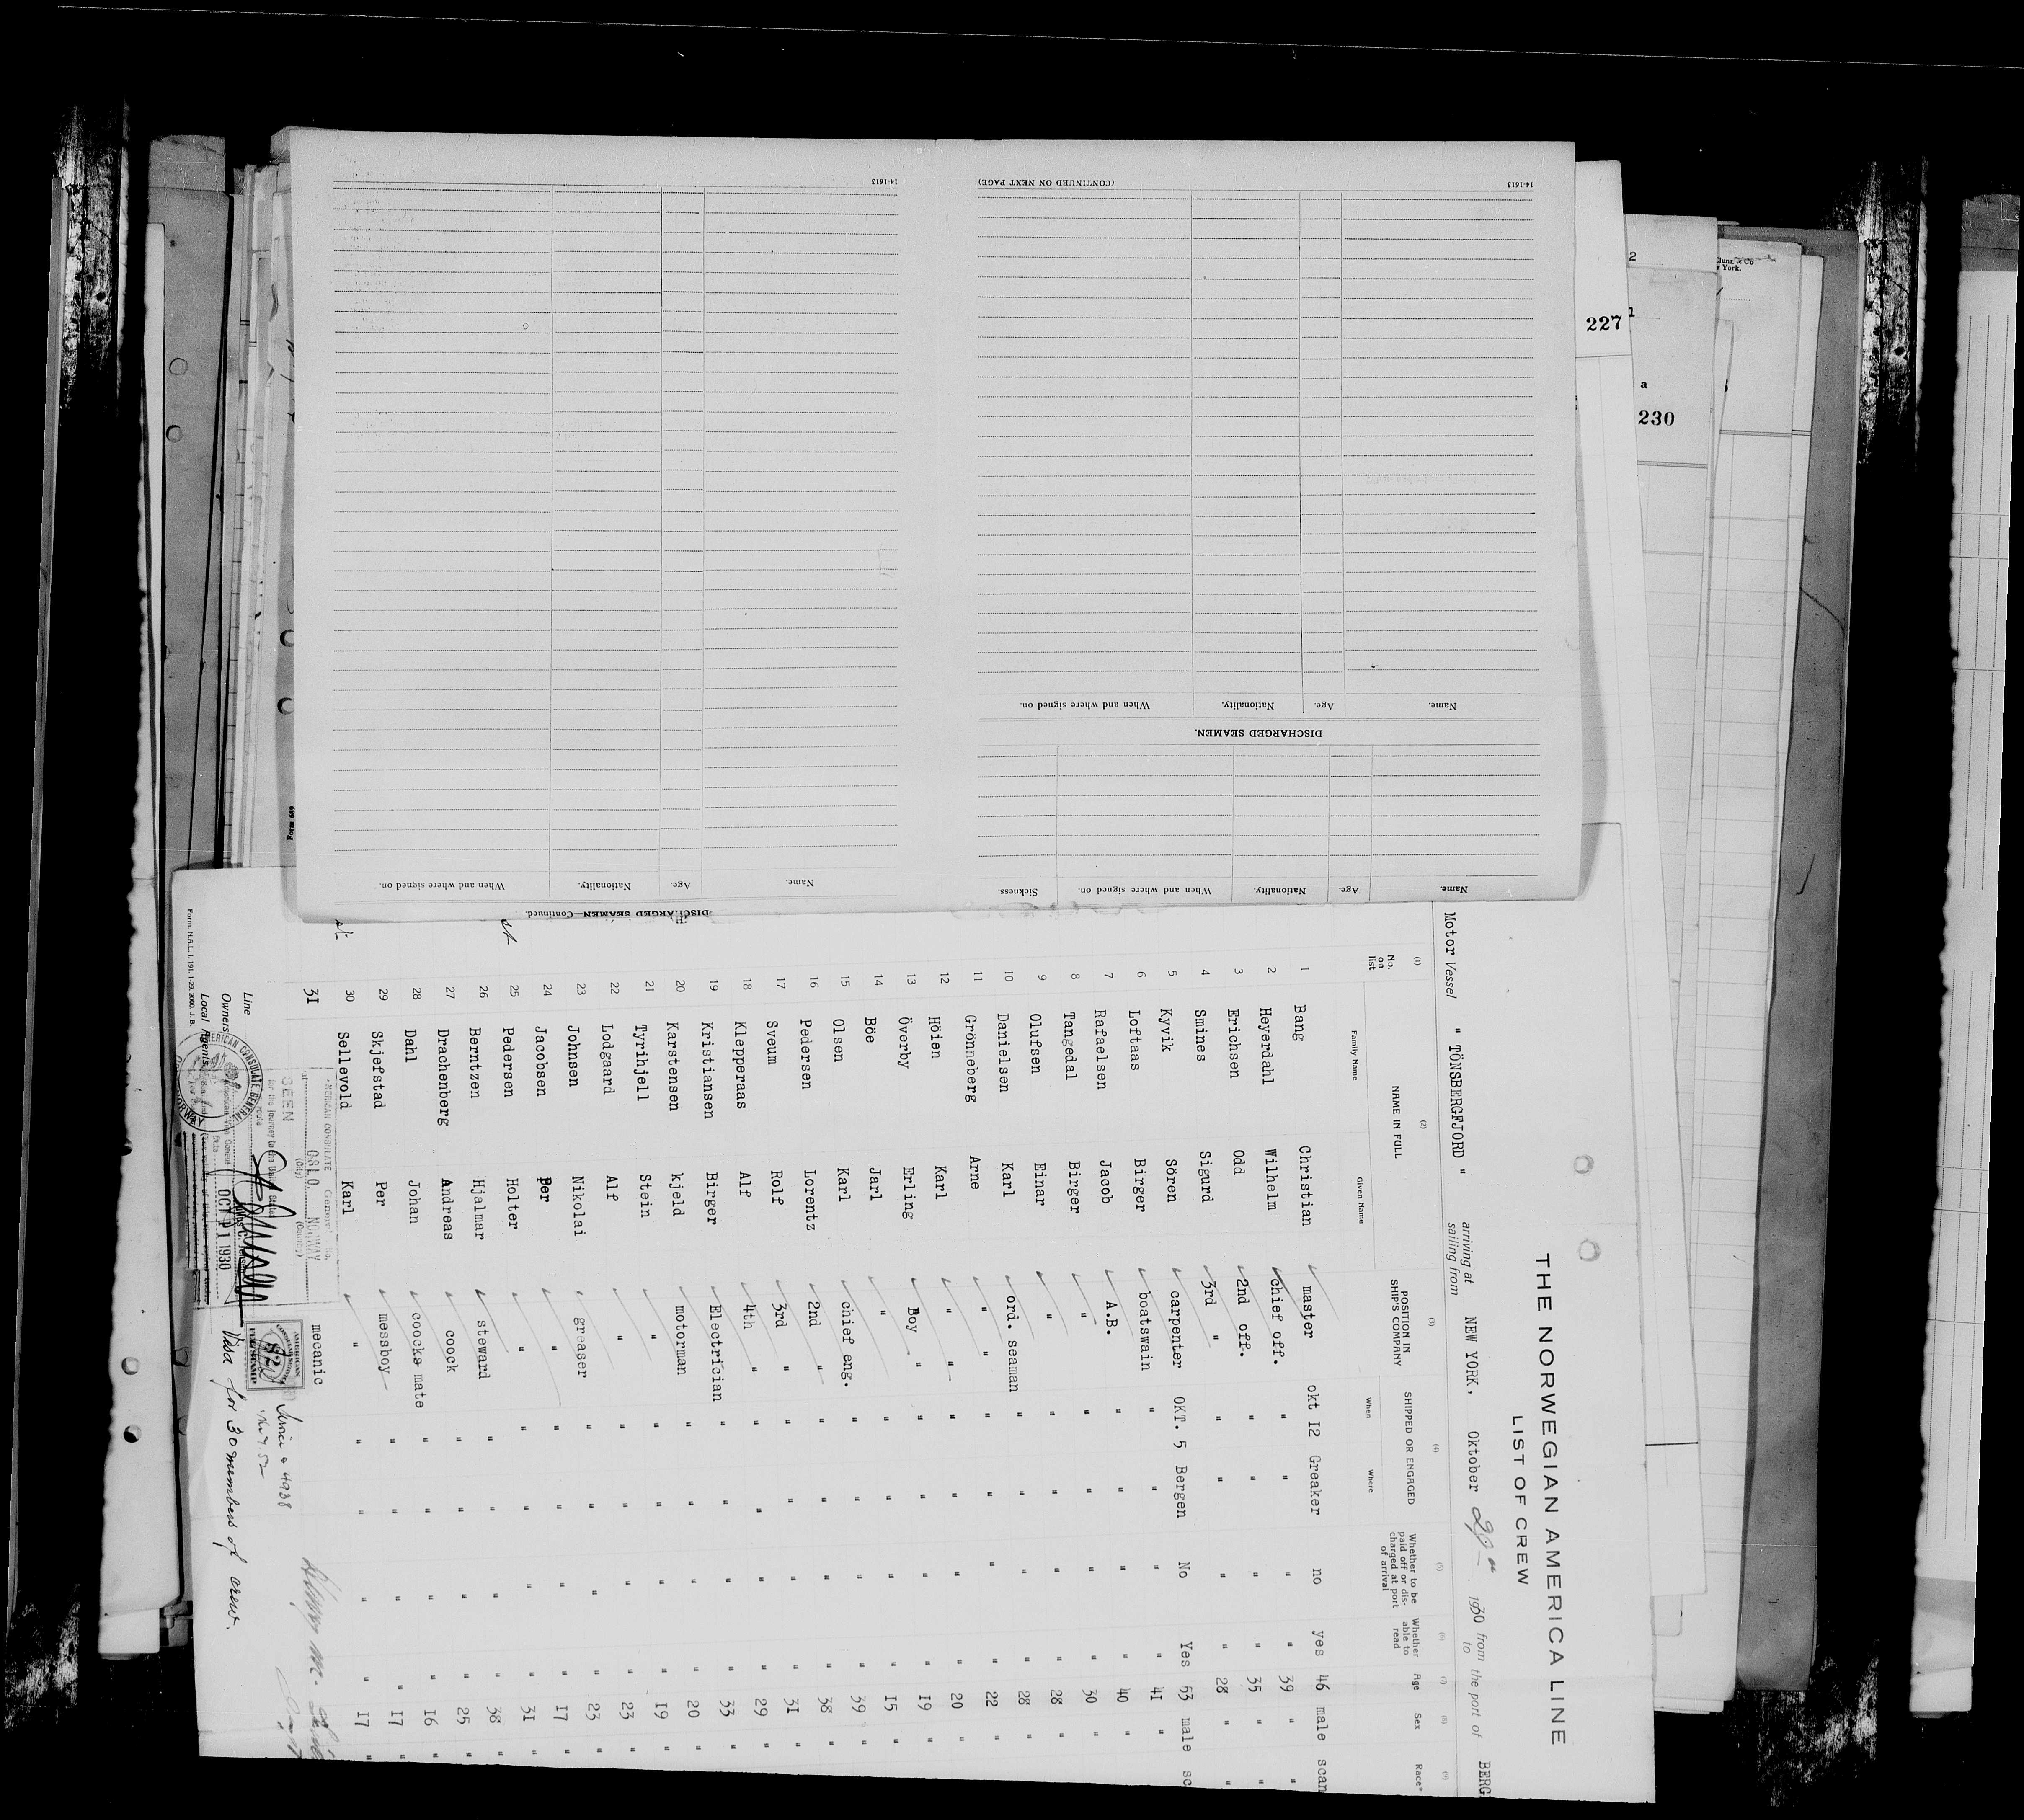 14-1613
(CONTINUED ON NEXT PAGE)
14-1613
When and where signed on.
Nationality.
Age.
Name.
DISCHARGED SEAMEN.
Name.
Age.
Nationality.
When and where signed on.
Sickness.
Name.
Age.
Nationality.
When and where signed on.
DISCHARGED SEAMEN—Continued
Form 689
227
230
2
a
York.
THE NORWEGIAN AMERICA LINE
LIST OF CREW
Motor Vessel " TÖNSBERGFJORD " arriving at sailing from NEW YORK, Oktober 1930 from to the port of BERG
(1) (2) (3) (4) (5) (6) (7) (8) (9)
No. on list NAME IN FULL POSITION IN SHIP'S COMPANY SHIPPED OR ENGAGED Whether to be paid off or discharged at port of arrival Whether able to read Age Sex Race*
Family Name Given Name When Where
1 Bang Christian master okt I2 Greaker no yes 46 male scan
2 Heyerdahl Wilhelm chief off. " " " " 39 " "
3 Erichsen Odd 2nd off. " " " " 35 " "
4 Smines Sigurd 3rd " " " " " 28 " "
5 Kyvik Sören carpenter OKT. 5 Bergen No Yes 53 male sc
6 Loftaas Birger boatswain " " " " 41 "
7 Rafaelsen Jacob A.B. " " " " 40 "
8 Tangedal Birger " " " " " 30 "
9 Olufsen Einar " " " " " 28 "
10 Danielsen Karl ord. seaman " " " " 28 "
11 Grönneberg Arne " " " " " 22 "
12 Höien Karl " " " " " 20 "
13 Överby Erling Boy " " " " 19 "
14 Böe Jarl " " " " " 15 "
15 Olsen Karl chief eng. " " " " 39 "
16 Pedersen Lorentz 2nd " " " " " 38 "
17 Sveum Rolf 3rd " " " " " 31 "
18 Klepperaas Alf 4th " " " " " 29 "
19 Kristiansen Birger Electrician " " " " 33 "
20 Karstensen kjeld motorman " " " " 20 "
21 Tyrihjell Stein " " " " " 19 "
22 Lodgaard Alf " " " " " 23 "
23 Johnsen Nikolai greaser " " " " 23 "
24 Jacobsen Per " " " " " 17 "
25 Pedersen Holter " " " " " 31 "
26 Berntzen Hjalmar steward " " " " 38 "
27 Drachenberg Andreas coock " " " " 25 "
28 Dahl Johan coocks mate " " " " 16 "
29 Skjefstad Per messboy " " " " 17 "
30 Sellevold Karl " " " " " 17 "
31 mecanic
AMERICAN CONSULATE General
OSLO, NORWAY
(City) (Country)
SEEN
for the journey to the United States
OCT 11 1930
AMERICAN CONSULATE GENERAL
NORWAY
AMERICAN
$2
FEE STAMP
Visa for 30 members of crew.
Line
Owners
Local Agents
Form. N.A.L. I. 191. 1-29. 2000. J. B.